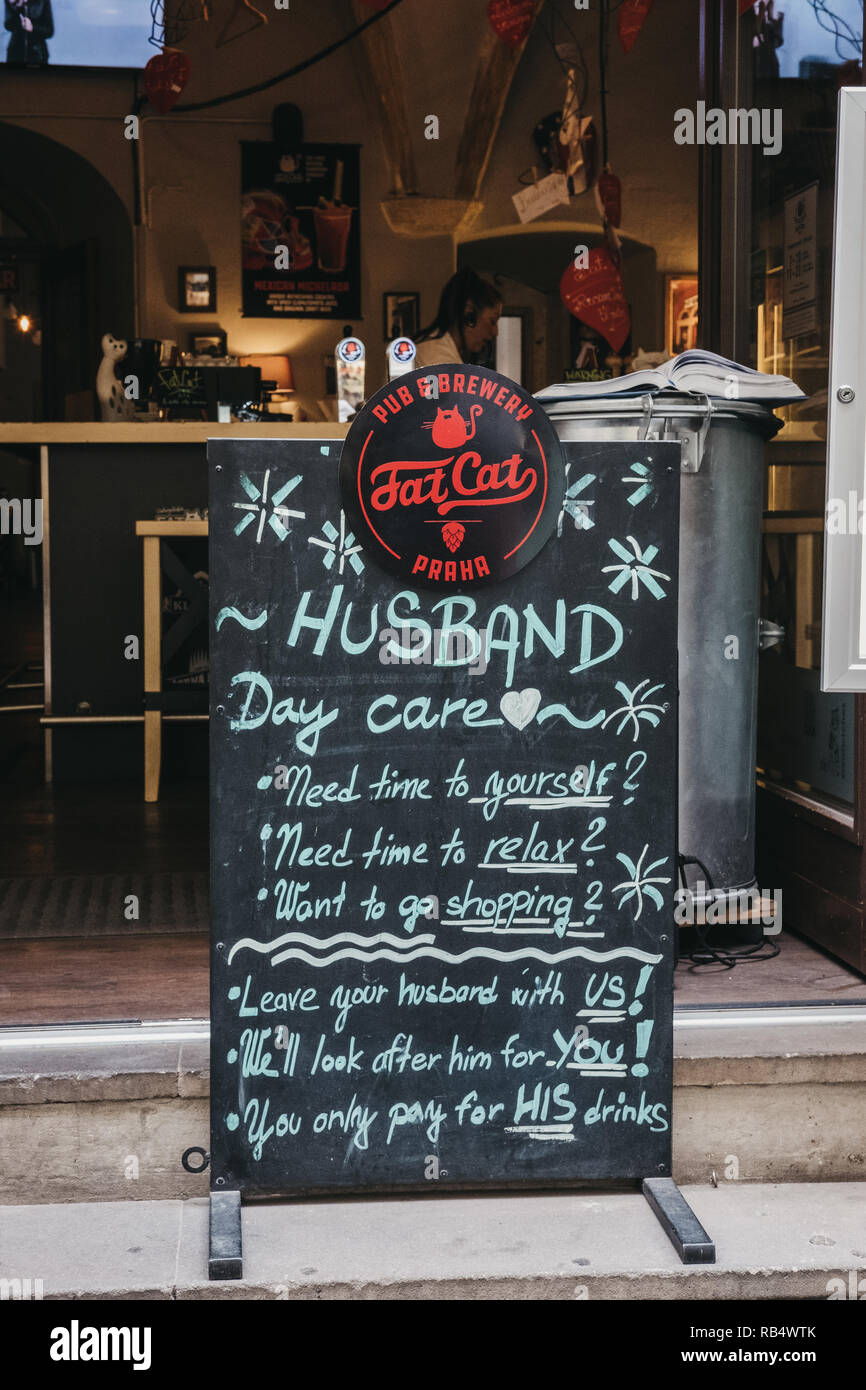 MEXICAN MICHELADA
PUB & BREWERY
Fat Cat
PRAHA
~ HUSBAND
Day care ~
• Need time to yourself?
• Need time to relax?
• Want to go shopping?
• Leave your husband with US!
• We'll look after him for YOU!
• You only pay for HIS drinks
alamy
Image ID: RB4WTK
www.alamy.com